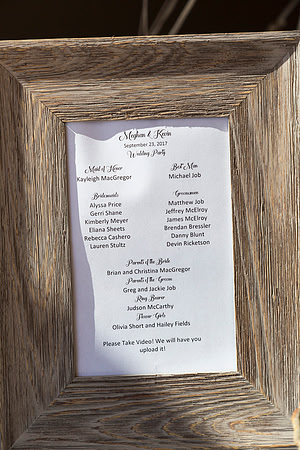 Meghan & Kevin
September 23, 2017
Wedding Party
Maid of Honor
Kayleigh MacGregor
Best Man
Michael Job
Bridesmaids
Alyssa Price
Gerri Shane
Kimberly Meyer
Eliana Sheets
Rebecca Cashero
Lauren Stultz
Groomsmen
Matthew Job
Jeffrey McElroy
James McElroy
Brendan Bressler
Danny Blunt
Devin Ricketson
Parents of the Bride
Brian and Christina MacGregor
Parents of the Groom
Greg and Jackie Job
Ring Bearer
Judson McCarthy
Flower Girls
Olivia Short and Hailey Fields
Please Take Video! We will have you
upload it!